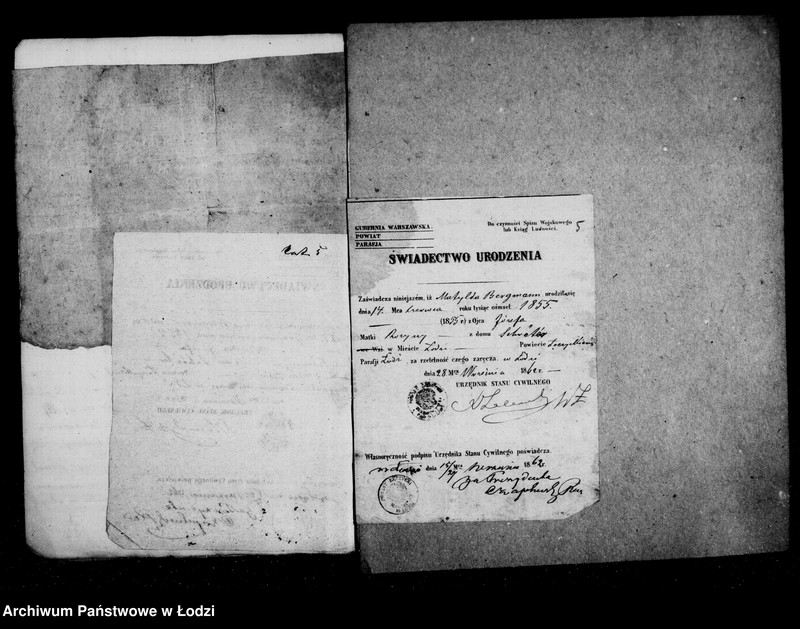 Cat 5
GUBERNIA WARSZAWSKA.
POWIAT
PARAFJA
Do czynności Spisu Wojskowego
lub Ksiąg Ludności.
5
ŚWIADECTWO URODZENIA
Zaświadcza niniejszém, iż Matylda Bergmann urodziła się
dnia 14 Mca Czerwca roku tysiąc ośmset 1855.
(1855 r) z Ojca Józefa
Matki Rozyny z domu
we Wsi w Mieście Łodzi Powiecie
Parafji Łódź, za rzetelność czego zaręcza. w Łodzi
dnia 28 Mca Września 1862 r.
URZĘDNIK STANU CYWILNEGO
Własnoręczność podpisu Urzędnika Stanu Cywilnego poświadcza.
dnia Mca 1862 r.
za Prezydenta
Archiwum Państwowe w Łodzi